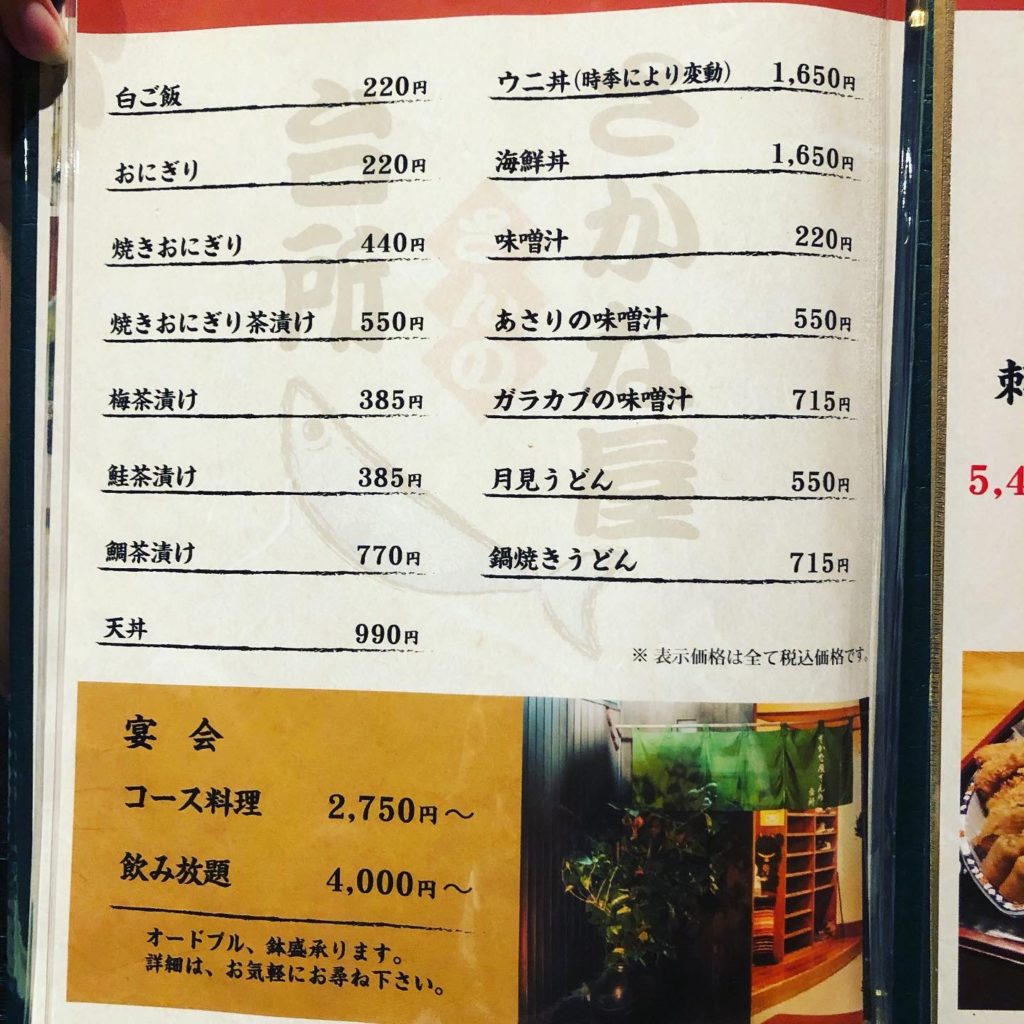 さかな屋
さんの
台所
白ご飯 220円
おにぎり 220円
焼きおにぎり 440円
焼きおにぎり茶漬け 550円
梅茶漬け 385円
鮭茶漬け 385円
鯛茶漬け 770円
天丼 990円
ウニ丼(時季により変動) 1,650円
海鮮丼 1,650円
味噌汁 220円
あさりの味噌汁 550円
ガラカブの味噌汁 715円
月見うどん 550円
鍋焼きうどん 715円
※ 表示価格は全て税込価格です。
宴 会
コース料理 2,750円～
飲み放題 4,000円～
オードブル、鉢盛承ります。
詳細は、お気軽にお尋ね下さい。
さかな屋さんの
台所
5,4